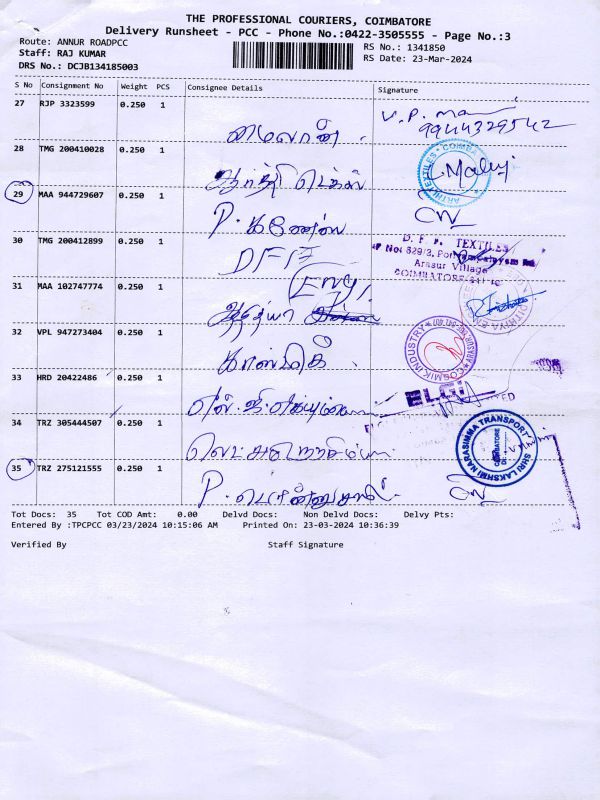 THE PROFESSIONAL COURIERS, COIMBATORE
Delivery Runsheet - PCC - Phone No.:0422-3505555 - Page No.:3
Route: ANNUR ROADPCC
Staff: RAJ KUMAR
DRS No.: DCJB134185003
RS No.: 1341850
RS Date: 23-Mar-2024
S No Consignment No Weight PCS Consignee Details Signature
27 RJP 3323599 0.250 1
மைலான்
9944329542
28 TMG 200410028 0.250 1
ஆர்த்தி டெக்ஸ்
ARTHI TEXTILES • COIMB
29 MAA 944729607 0.250 1
P. கணேஷ்
30 TMG 200412899 0.250 1
DFF
D. F. F. TEXTILES
Arasur Village
COIMBATORE
31 MAA 102747774 0.250 1
ஆதித்யா
32 VPL 947273404 0.250 1
காஸ்மிக்
COSMIK INDUSTRY
33 HRD 20422486 0.250 1
ELGI
34 TRZ 305444507 0.250 1
SHRI LAKSHMI NARASIMMA TRANSPORT
COIMBATORE
35 TRZ 275121555 0.250 1
Tot Docs: 35 Tot COD Amt: 0.00 Delvd Docs: Non Delvd Docs: Delvy Pts:
Entered By :TPCPCC 03/23/2024 10:15:06 AM Printed On: 23-03-2024 10:36:39
Verified By Staff Signature